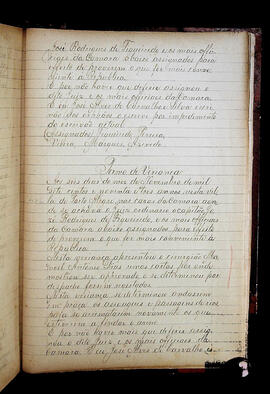 José Rodrigues de Figueiredo e os mais offi-
ciaes da Camara abaixo assignados para
effeito de proverem o que for mais conve-
niente á Republica.
E por não haver que deferir assignou o
dito Juiz e os mais officiaes da Camara.
E eu José Alves de Carvalho e Silva escri-
vão dos orphãos o escrevi por impedimento
do escrivão actual.
(Assignados) Figueiredo, Pereira,
Vieira, Marques, Azevedo.
Termo de Vereança
Aos seis dias do mez de Novembro de mil
sete centos e noventa e tres annos nesta vil-
la de Porto Alegre, nas casas da Camara aon-
de se achava o Juiz ordinario o capitão Jo-
sé Rodrigues de Figueiredo, e os mais officiaes
da Camara abaixo assignados para effeito
de proverem o que for mais conveniente á
Republica.
Nesta vereança apresentou o cirurgião Ma-
noel Antonio
mostrou ser approvado e se determinou por
despacho foram registados.
Nesta vereança se determinou andassem
em praça os açougues e passagens de rios
para se arrematarem novamente os que
estiverem a findar o anno.
E por não haver mais que deferir assig-
nou o dito Juiz e os mais officiaes da
Camara. E eu José Alves de Carvalho e